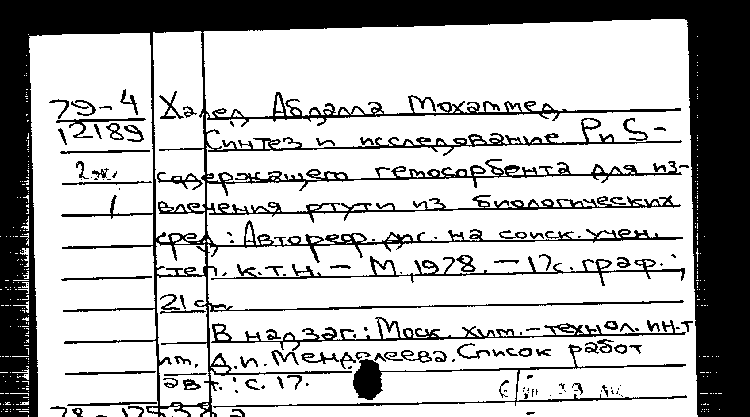 79-4 Халед Абдалла Мохаммед.
12189 Синтез и исследование P и S-
2 эк. содержащего гемосорбента для из-
1 влечения ртути из биологических
сред: Автореф. дис. на соиск. учен.
степ. к.т.н. – М., 1978. – 17с. граф.;
21 см.
В надзаг.: Моск. хим.-технол. ин-т
им. Д.И. Менделеева. Список работ
авт.: с. 17.